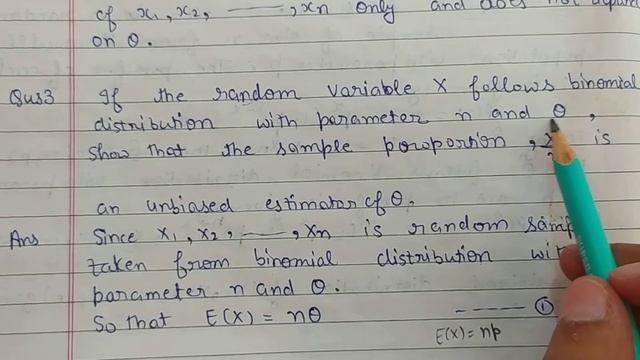 of x1, x2, ——, xn only and does not
on θ.
Qus3 If the random variable X follows binomial
distribution with parameter n and θ,
show that the sample poroportion, is
an unbiased estimator of θ.
Ans Since x1, x2, ——, xn is random
taken from binomial distribution
parameter n and θ.
So that E(X) = nθ ----- ①
E(X) = np